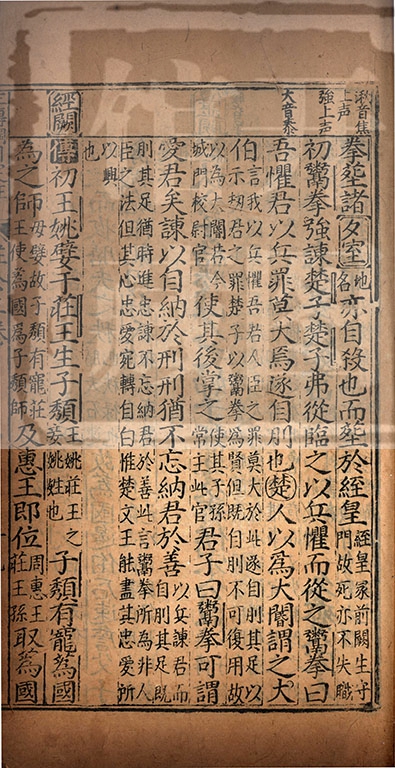 湫音焦
上声
強上声
大音泰
拳塟諸夕室地名亦自殺也而塟於経皇経皇冢前闕生守門故死亦不失職
初鬻拳強諫楚子楚子弗從臨之以兵懼而從之鬻拳曰
吾懼君以兵罪莫大焉遂自刖也楚人以爲大閽謂之大
伯言我以兵懼吾君人臣之罪莫大於此遂自刖其足以示刼君之罪楚子以鬻拳為賢但既自刖不可復用故
以為大閽若今城門校尉官使其後掌之使其子孫常主此官君子曰鬻拳可謂
愛君矣諫以自納於刑刑猶不忘納君於善以兵諫君而自刖其足既
刖其足猶時進忠諫不忘納君於善此言鬻拳所為非人臣之法但其心忠愛宛轉自白惟楚文王能盡其忠愛所
以興也
經闕
傳初王姚嬖于莊王生子頹王姚莊王之妾姚姓也子頹有寵為國
為之師母嬖故子頹有寵莊王使為國為子頹師及惠王即位周惠王莊王孫取為國